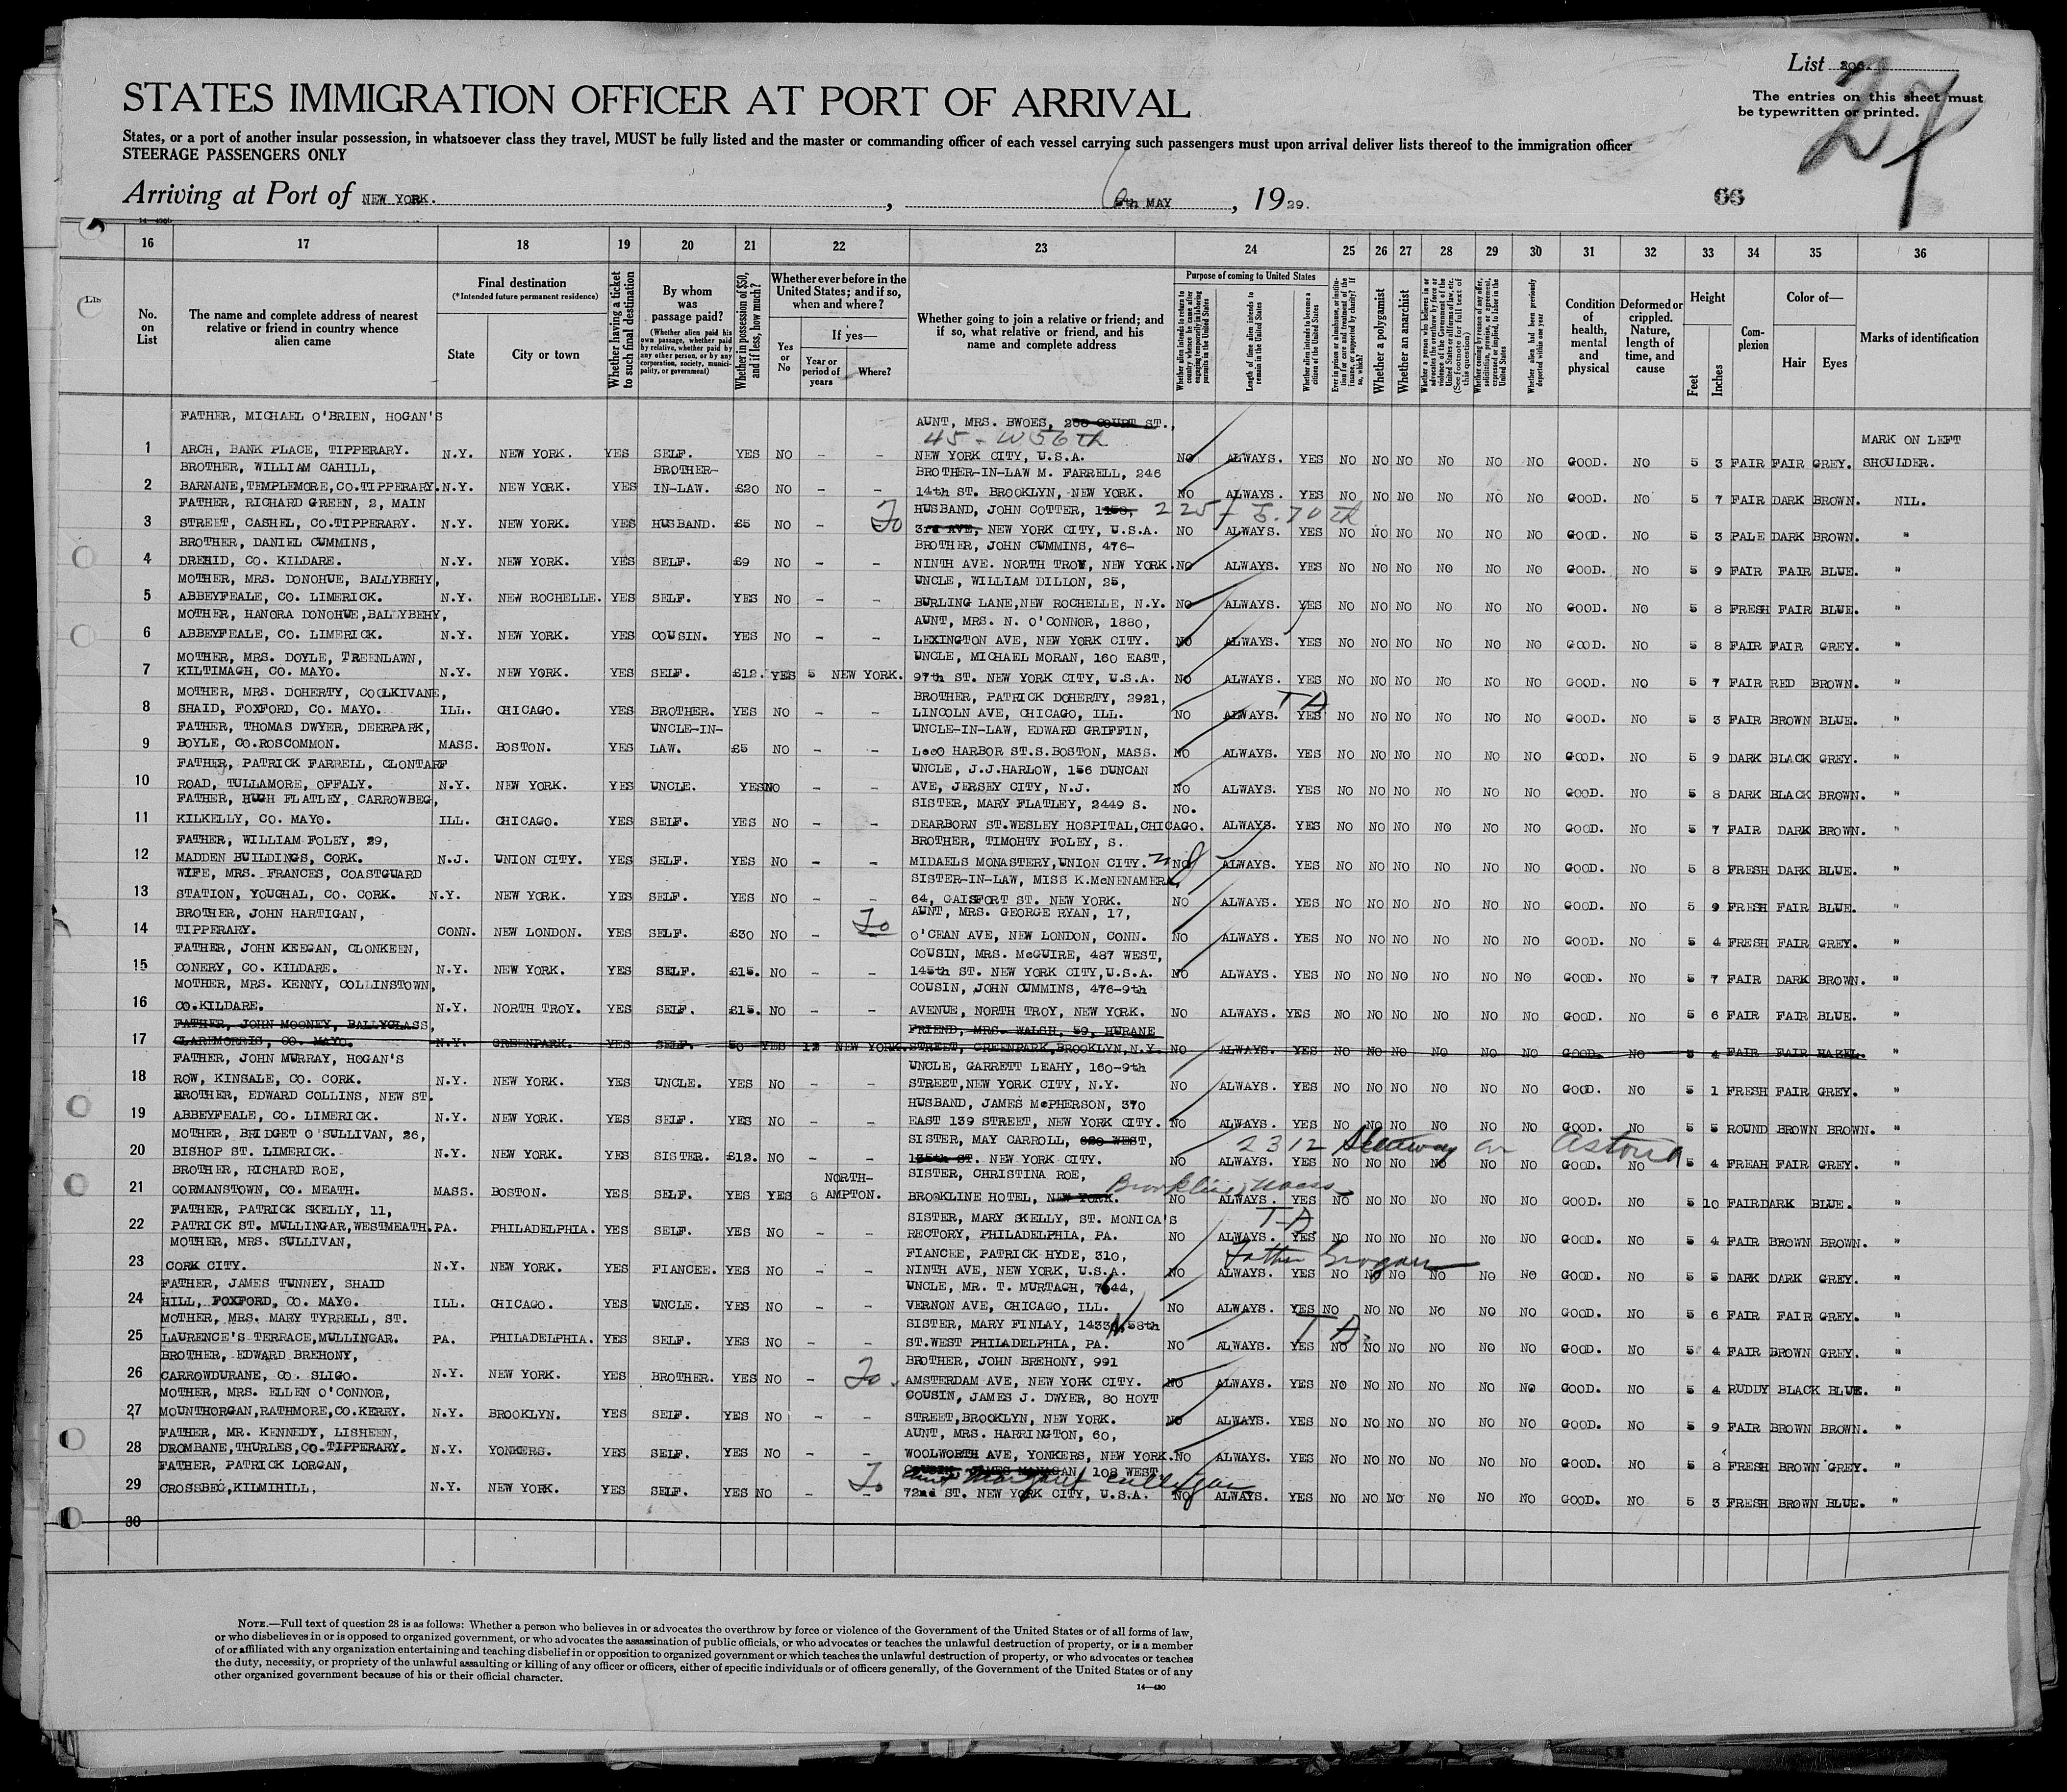 List 206.
27
The entries on this sheet must
be typewritten or printed.
STATES IMMIGRATION OFFICER AT PORT OF ARRIVAL
States, or a port of another insular possession, in whatsoever class they travel, MUST be fully listed and the master or commanding officer of each vessel carrying such passengers must upon arrival deliver lists thereof to the immigration officer
STEERAGE PASSENGERS ONLY
Arriving at Port of NEW YORK. , 6th MAY , 1929.
66
16 17 18 19 20 21 22 23 24 25 26 27 28 29 30 31 32 33 34 35 36
No. on List
The name and complete address of nearest relative or friend in country whence alien came
Final destination
(*Intended future permanent residence)
State City or town
Whether having a ticket to such final destination
By whom was passage paid?
(Whether alien paid his own passage, whether paid by relative, whether paid by any other person, or by any corporation, society, municipality, or government)
Whether in possession of $50, and if less, how much?
Whether ever before in the United States; and if so, when and where?
Yes or No
If yes—
Year or period of years Where?
Whether going to join a relative or friend; and if so, what relative or friend, and his name and complete address
Purpose of coming to United States
Whether alien intends to return to country whence he came after engaging temporarily in laboring pursuits in the United States
Length of time alien intends to remain in the United States
Whether alien intends to become a citizen of the United States
Ever in prison or almshouse, or institution for care and treatment of the insane, or supported by charity? If so, which?
Whether a polygamist
Whether an anarchist
Whether a person who believes in or advocates the overthrow by force or violence of the Government of the United States or all forms of law, etc. (See footnote for full text of this question)
Whether coming by reason of any offer, solicitation, promise, or agreement, expressed or implied, to labor in the United States
Whether alien had been previously deported within one year
Condition of health, mental and physical
Deformed or crippled. Nature, length of time, and cause
Height
Feet Inches
Complexion
Color of—
Hair Eyes
Marks of identification
FATHER, MICHAEL O'BRIEN, HOGAN'S AUNT, MRS. BWOES, 200 COURT ST., MARK ON LEFT
45 - W 56th
1 ARCH, BANK PLACE, TIPPERARY. N.Y. NEW YORK. YES SELF. YES NO - - NEW YORK CITY, U.S.A. NO ALWAYS. YES NO NO NO NO NO NO GOOD. NO 5 3 FAIR FAIR GREY. SHOULDER.
BROTHER, WILLIAM CAHILL, BROTHER- BROTHER-IN-LAW M. FARRELL, 246
2 BARNANE, TEMPLEMORE, CO.TIPPERARY. N.Y. NEW YORK. YES IN-LAW. £20 NO - - 14th ST. BROOKLYN, NEW YORK. NO ALWAYS. YES NO NO NO NO NO NO GOOD. NO 5 7 FAIR DARK BROWN. NIL.
FATHER, RICHARD GREEN, 2, MAIN HUSBAND, JOHN COTTER, 1158, 225 E. 70th
3 STREET, CASHEL, CO.TIPPERARY. N.Y. NEW YORK. YES HUSBAND. £5 NO - To 3rd AVE, NEW YORK CITY, U.S.A. NO ALWAYS. YES NO NO NO NO NO NO GOOD. NO 5 3 PALE DARK BROWN. "
BROTHER, DANIEL CUMMINS, BROTHER, JOHN CUMMINS, 476-
4 DREHID, CO. KILDARE. N.Y. NEW YORK. YES SELF. £9 NO - - NINTH AVE. NORTH TROY, NEW YORK. NO ALWAYS. YES NO NO NO NO NO NO GOOD. NO 5 9 FAIR FAIR BLUE. "
MOTHER, MRS. DONOHUE, BALLYBEHY, UNCLE, WILLIAM DILLON, 25,
5 ABBEYFEALE, CO. LIMERICK. N.Y. NEW ROCHELLE. YES SELF. YES NO - - BURLING LANE, NEW ROCHELLE, N.Y. NO ALWAYS. YES NO NO NO NO NO NO GOOD. NO 5 8 FRESH FAIR BLUE. "
MOTHER, HANORA DONOHUE, BALLYBEHY, AUNT, MRS. N. O'CONNOR, 1880,
6 ABBEYFEALE, CO. LIMERICK. N.Y. NEW YORK. YES COUSIN. YES NO - - LEXINGTON AVE, NEW YORK CITY. NO ALWAYS. YES NO NO NO NO NO NO GOOD. NO 5 8 FAIR FAIR GREY. "
MOTHER, MRS. DOYLE, TREENLAWN, UNCLE, MICHAEL MORAN, 160 EAST,
7 KILTIMAGH, CO. MAYO. N.Y. NEW YORK. YES SELF. £12. YES 5 NEW YORK. 97th ST. NEW YORK CITY, U.S.A. NO ALWAYS. YES NO NO NO NO NO NO GOOD. NO 5 7 FAIR RED BROWN. "
MOTHER, MRS. DOHERTY, COOLKIVANE, BROTHER, PATRICK DOHERTY, 2921, T A
8 SHAID, FOXFORD, CO. MAYO. ILL. CHICAGO. YES BROTHER. YES NO - - LINCOLN AVE, CHICAGO, ILL. NO ALWAYS. YES NO NO NO NO NO NO GOOD. NO 5 3 FAIR BROWN BLUE. "
FATHER, THOMAS DWYER, DEERPARK, UNCLE-IN- UNCLE-IN-LAW, EDWARD GRIFFIN,
9 BOYLE, CO.ROSCOMMON. MASS. BOSTON. YES LAW. £5 NO - - HARBOR ST.S.BOSTON, MASS. NO ALWAYS. YES NO NO NO NO NO NO GOOD. NO 5 9 DARK BLACK GREY. "
FATHER, PATRICK FARRELL, CLONTARF UNCLE, J.J.HARLOW, 156 DUNCAN
10 ROAD, TULLAMORE, OFFALY. N.Y. NEW YORK. YES UNCLE. YES NO - - AVE, JERSEY CITY, N.J. NO ALWAYS. YES NO NO NO NO NO NO GOOD. NO 5 8 DARK BLACK BROWN. "
FATHER, HUGH FLATLEY, CARROWBEG, SISTER, MARY FLATLEY, 2449 S. NO.
11 KILKELLY, CO. MAYO. ILL. CHICAGO. YES SELF. YES NO - - DEARBORN ST.WESLEY HOSPITAL, CHICAGO. ALWAYS. YES NO NO NO NO NO NO GOOD. NO 5 7 FAIR DARK BROWN. "
FATHER, WILLIAM FOLEY, 29, BROTHER, TIMOHTY FOLEY, S.
12 MADDEN BUILDINGS, CORK. N.J. UNION CITY. YES SELF. YES NO - - MIDAELS MONASTERY, UNION CITY. NJ NO ALWAYS. YES NO NO NO NO NO NO GOOD. NO 5 8 FRESH DARK BLUE. "
WIFE, MRS. FRANCES, COASTGUARD SISTER-IN-LAW, MISS K.McNENAMERA
13 STATION, YOUGHAL, CO. CORK. N.Y. NEW YORK. YES SELF. YES NO - - 64, GAISFORT ST. NEW YORK. NO ALWAYS. YES NO NO NO NO NO NO GOOD. NO 5 9 FRESH FAIR BLUE. "
BROTHER, JOHN HARTIGAN, To AUNT, MRS. GEORGE RYAN, 17,
14 TIPPERARY. CONN. NEW LONDON. YES SELF. £30 NO - - O'CEAN AVE, NEW LONDON, CONN. NO ALWAYS. YES NO NO NO NO NO NO GOOD. NO 5 4 FRESH FAIR GREY. "
FATHER, JOHN KEEGAN, CLONKEEN, COUSIN, MRS. McGUIRE, 487 WEST,
15 CONERY, CO. KILDARE. N.Y. NEW YORK. YES SELF. £15. NO - - 145th ST. NEW YORK CITY, U.S.A. NO ALWAYS. YES NO NO NO NO NO NO GOOD. NO 5 7 FAIR DARK BROWN. "
MOTHER, MRS. KENNY, COLLINSTOWN, COUSIN, JOHN CUMMINS, 476-9th
16 CO.KILDARE. N.Y. NORTH TROY. YES SELF. £15. NO - - AVENUE, NORTH TROY, NEW YORK. NO ALWAYS. YES NO NO NO NO NO NO GOOD. NO 5 6 FAIR FAIR BLUE. "
FATHER, JOHN MOONEY, BALLYGLASS, FRIEND, MRS. WALSH, 59, HURANE
17 CLAREMORRIS, CO. MAYO. N.Y. GREENPARK. YES SELF. 50 YES 12 NEW YORK. STREET, GREENPARK, BROOKLYN, N.Y. NO ALWAYS. YES NO NO NO NO NO NO GOOD. NO 5 4 FAIR FAIR HAZEL. "
FATHER, JOHN MURRAY, HOGAN'S UNCLE, GARRETT LEAHY, 160-9th
18 ROW, KINSALE, CO. CORK. N.Y. NEW YORK. YES UNCLE. YES NO - - STREET, NEW YORK CITY, N.Y. NO ALWAYS. YES NO NO NO NO NO NO GOOD. NO 5 1 FRESH FAIR GREY. "
BROTHER, EDWARD COLLINS, NEW ST. HUSBAND, JAMES McPHERSON, 370
19 ABBEYFEALE, CO. LIMERICK. N.Y. NEW YORK. YES SELF. YES NO - - EAST 139 STREET, NEW YORK CITY. NO ALWAYS. YES NO NO NO NO NO NO GOOD. NO 5 5 ROUND BROWN BROWN. "
MOTHER, BRIDGET O'SULLIVAN, 26, SISTER, MAY CARROLL, 620 WEST, 2312 Steinway av Astoria
20 BISHOP ST. LIMERICK. N.Y. NEW YORK. YES SISTER. £12. NO - - 135th ST. NEW YORK CITY. NO ALWAYS. YES NO NO NO NO NO NO GOOD. NO 5 4 FREAH FAIR GREY. "
BROTHER, RICHARD ROE, NORTH- SISTER, CHRISTINA ROE, Brookline, Mass
21 GORMANSTOWN, CO. MEATH. MASS. BOSTON. YES SELF. YES YES 8 AMPTON. BROOKLINE HOTEL, NEW YORK. NO ALWAYS. YES NO NO NO NO NO NO GOOD. NO 5 10 FAIR DARK BLUE. "
FATHER, PATRICK SKELLY, 11, SISTER, MARY SKELLY, ST. MONICA'S T-A
22 PATRICK ST. MULLINGAR, WESTMEATH. PA. PHILADELPHIA. YES SELF. YES NO - - RECTORY, PHILADELPHIA, PA. NO ALWAYS. YES NO NO NO NO NO NO GOOD. NO 5 4 FAIR BROWN BROWN. "
MOTHER, MRS. SULLIVAN, FIANCEE, PATRICK HYDE, 310, Father Grogan
23 CORK CITY. N.Y. NEW YORK. YES FIANCEE. YES NO - - NINTH AVE, NEW YORK, U.S.A. NO ALWAYS. YES NO NO NO NO NO NO GOOD. NO 5 5 DARK DARK GREY. "
FATHER, JAMES TUNNEY, SHAID UNCLE, MR. T. MURTAGH, 7644,
24 HILL, FOXFORD, CO. MAYO. ILL. CHICAGO. YES UNCLE. YES NO - - VERNON AVE, CHICAGO, ILL. NO ALWAYS. YES NO NO NO NO NO NO GOOD. NO 5 6 FAIR FAIR GREY. "
MOTHER, MRS. MARY TYRRELL, ST. SISTER, MARY FINLAY, 1433 N, 58th T A.
25 LAURENCE'S TERRACE, MULLINGAR. PA. PHILADELPHIA. YES SELF. YES NO - - ST.WEST PHILADELPHIA, PA. NO ALWAYS. YES NO NO NO NO NO NO GOOD. NO 5 4 FAIR BROWN GREY. "
BROTHER, EDWARD BREHONY, BROTHER, JOHN BREHONY, 991
26 CARROWDURANE, CO. SLIGO. N.Y. NEW YORK. YES BROTHER. YES NO - To. AMSTERDAM AVE, NEW YORK CITY. NO ALWAYS. YES NO NO NO NO NO NO GOOD. NO 5 4 RUDDY BLACK BLUE. "
MOTHER, MRS. ELLEN O'CONNOR, COUSIN, JAMES J. DWYER, 80 HOYT
27 MOUNTHORGAN, RATHMORE, CO.KERRY. N.Y. BROOKLYN. YES SELF. YES NO - - STREET, BROOKLYN, NEW YORK. NO ALWAYS. YES NO NO NO NO NO NO GOOD. NO 5 9 FAIR BROWN BROWN. "
FATHER, MR. KENNEDY, LISHEEN, AUNT, MRS. HARRINGTON, 60,
28 DROMBANE, THURLES, CO.TIPPERARY. N.Y. YONKERS. YES SELF. YES NO - - WOOLWORTH AVE, YONKERS, NEW YORK. NO ALWAYS. YES NO NO NO NO NO NO GOOD. NO 5 8 FRESH BROWN GREY. "
FATHER, PATRICK LORGAN, To COUSIN, JAMES MANAGAN, 108 WEST
Aunt Margaret Culligan
29 CROSSBEG, KILMIHILL, N.Y. NEW YORK. YES SELF. YES NO - - 72nd ST. NEW YORK CITY, U.S.A. NO ALWAYS. YES NO NO NO NO NO NO GOOD. NO 5 3 FRESH BROWN BLUE. "
30
NOTE.—Full text of question 28 is as follows: Whether a person who believes in or advocates the overthrow by force or violence of the Government of the United States or of all forms of law,
or who disbelieves in or is opposed to organized government, or who advocates the assassination of public officials, or who advocates or teaches the unlawful destruction of property, or is a member
of or affiliated with any organization entertaining and teaching disbelief in or opposition to organized government or which teaches the unlawful destruction of property, or who advocates or teaches
the duty, necessity, or propriety of the unlawful assaulting or killing of any officer or officers, either of specific individuals or of officers generally, of the Government of the United States or of any
other organized government because of his or their official character.
14—430